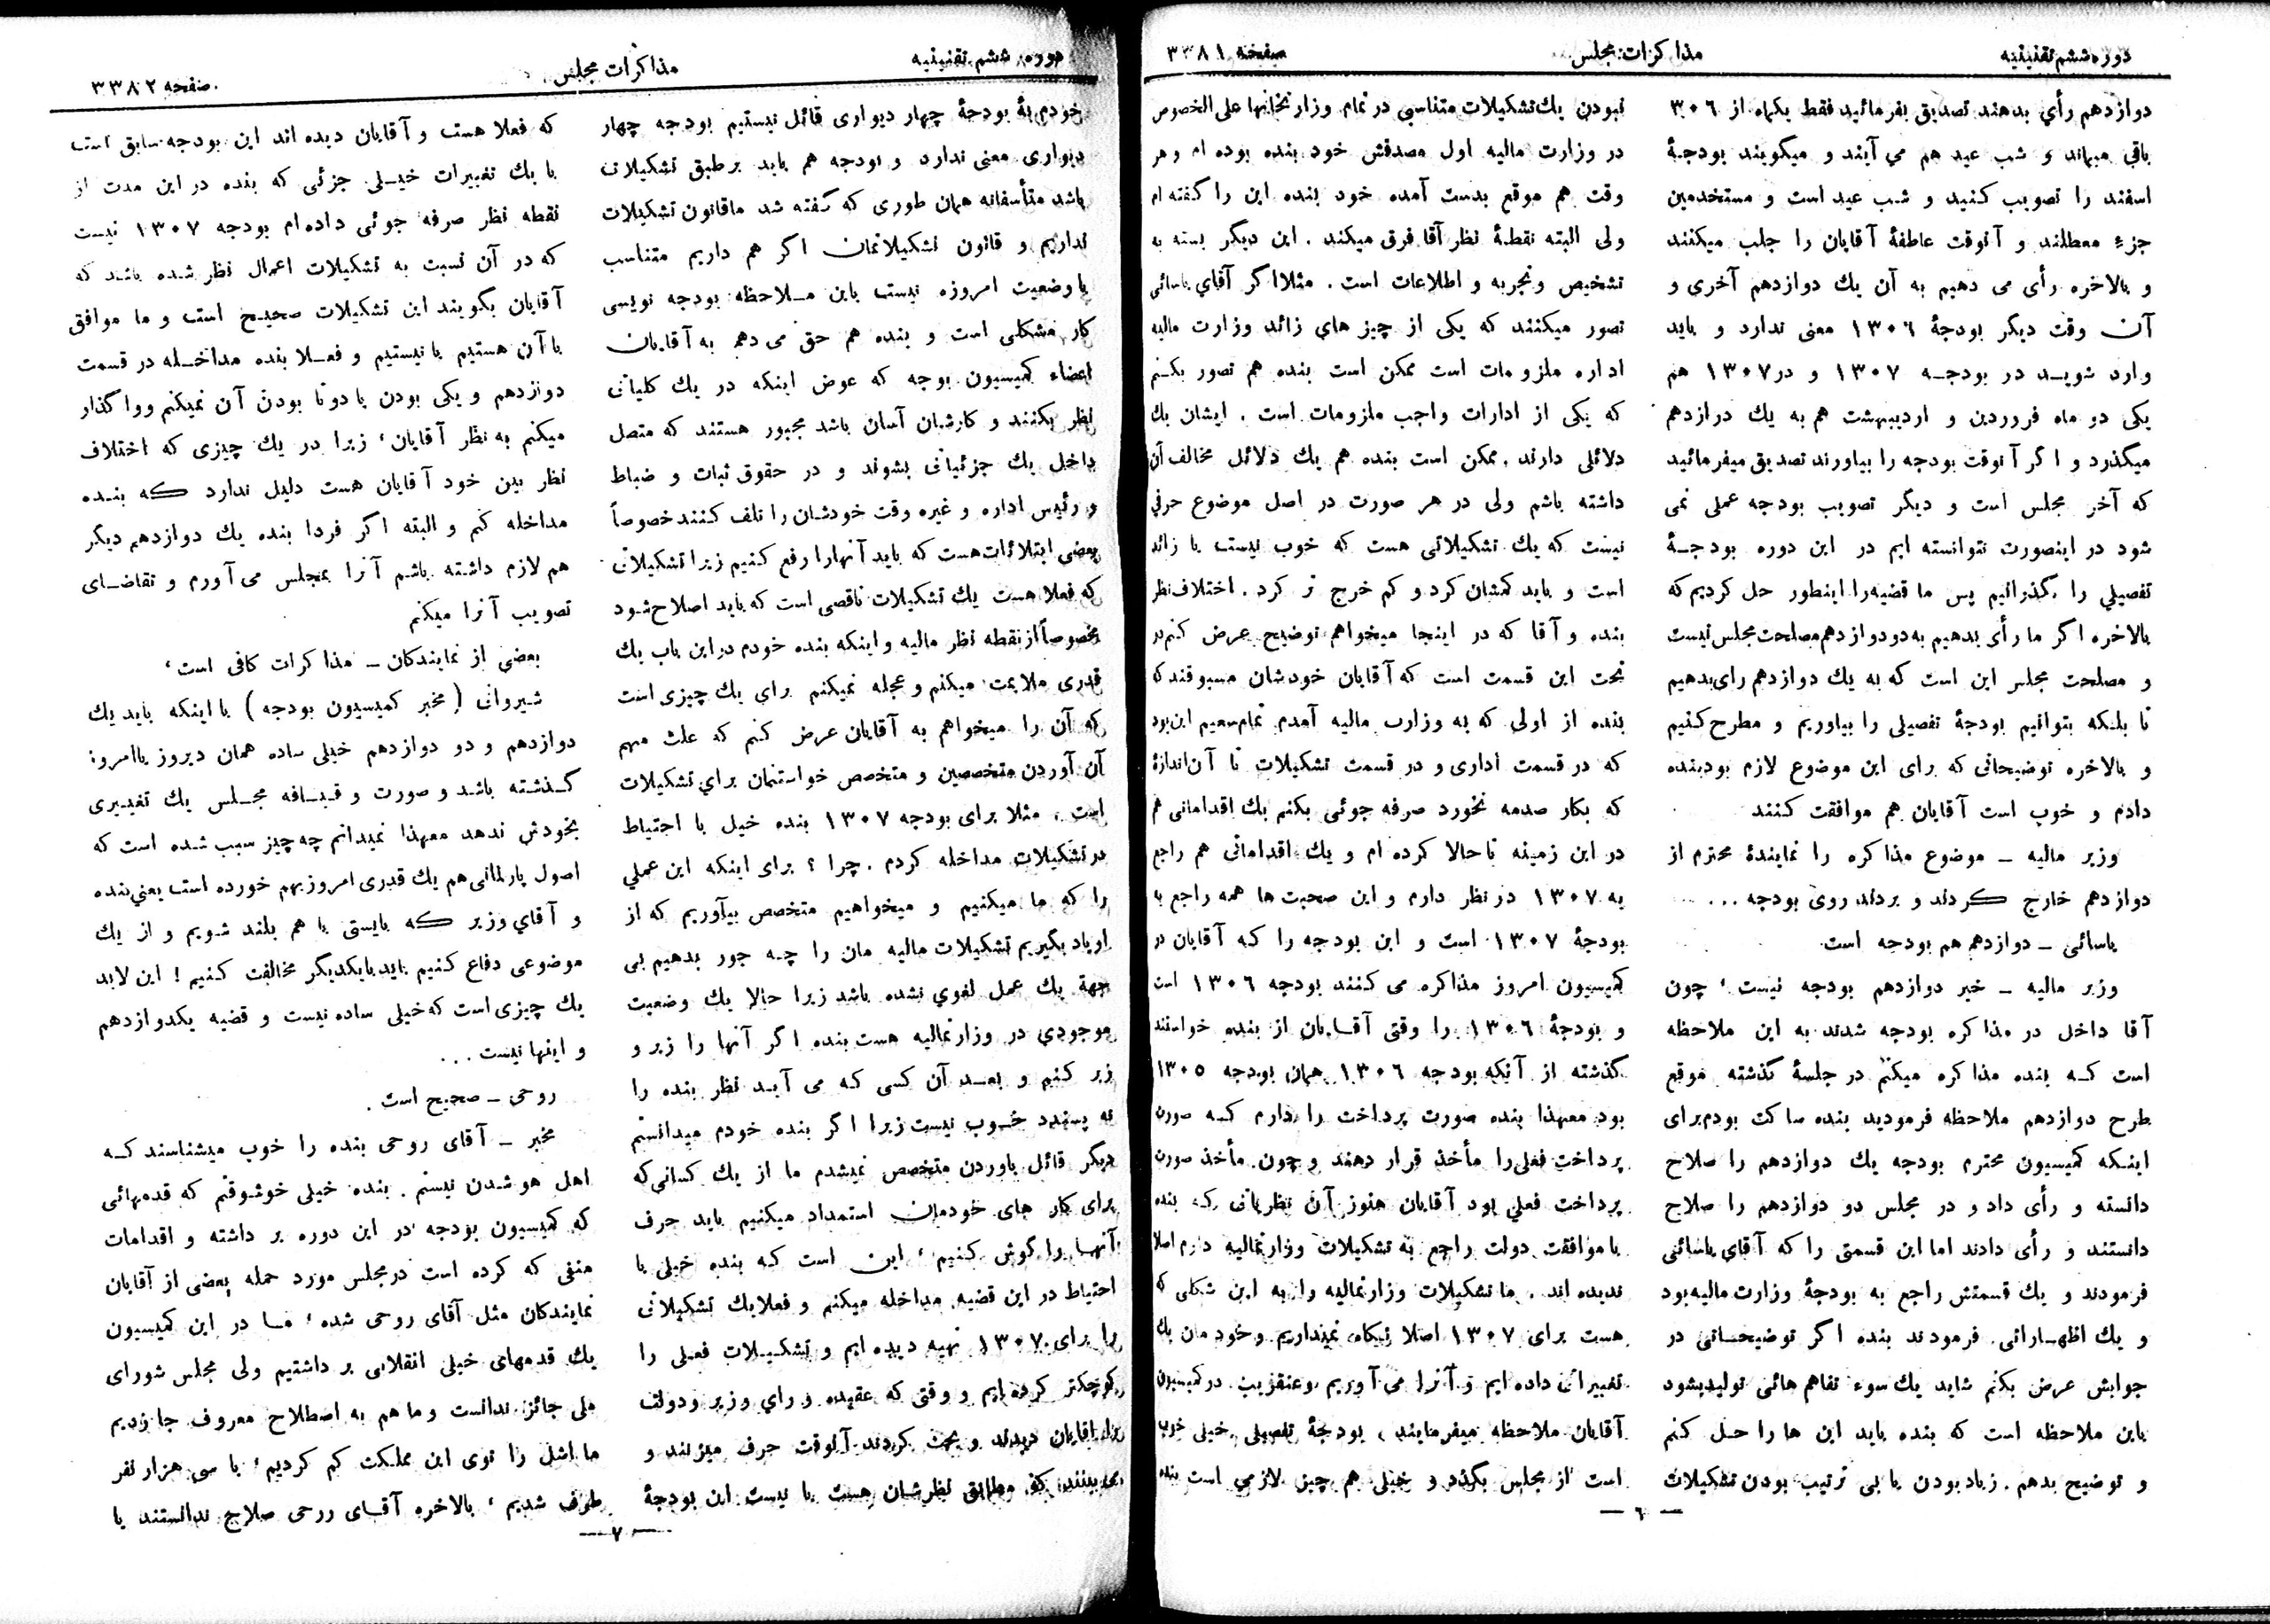 دوره ششم تقنینیه
مذاکرات مجلس
صفحه ۳۳۸۱
دوازدهم رأی بدهند تصدیق بفرمائید فقط یکماه از ۳۰۶
باقی میماند و شب عید هم می آیند و میگویند بودجهٔ
اسفند را تصویب کنید و شب عید است و مستخدمین
جزء معطلند و آنوقت عاطفهٔ آقایان را جلب میکنند
و بالاخره رأی می دهیم به آن یك دوازدهم آخری و
آن وقت دیگر بودجهٔ ۱۳۰۶ معنی ندارد و باید
وارد شوید در بودجه ۱۳۰۷ و در ۱۳۰۷ هم
یکی دو ماه فروردین و اردیبهشت هم به یك دوازدهم
میگذرد و اگر آنوقت بودجه را بیاورند تصدیق میفرمائید
که آخر مجلس است و دیگر تصویب بودجه عملی نمی
شود در اینصورت نتوانسته ایم در این دوره بودجهٔ
تفصیلی را بگذرانیم پس ما قضیه را اینطور حل کردیم که
بالاخره اگر ما رأی بدهیم به دو دوازدهم مصلحت مجلس نیست
و مصلحت مجلس این است که به یك دوازدهم رای بدهیم
تا بلکه بتوانیم بودجهٔ تفصیلی را بیاوریم و مطرح کنیم
و بالاخره توضیحاتی که برای این موضوع لازم بود بنده
دادم و خوب است آقایان هم موافقت کنند
وزیر مالیه ـ موضوع مذاکره را نمایندهٔ محترم از
دوازدهم خارج کردند و بردند روی بودجه ...
یاسائی ـ دوازدهم هم بودجه است
وزیر مالیه ـ خیر دوازدهم بودجه نیست ، چون
آقا داخل در مذاکره بودجه شدند به این ملاحظه
است که بنده مذاکره میکنم در جلسهٔ گذشته موقع
طرح دوازدهم ملاحظه فرمودید بنده ساکت بودم برای
اینکه کمیسیون محترم بودجه یك دوازدهم را صلاح
دانسته و رأی داد و در مجلس دو دوازدهم را صلاح
دانستند و رأی دادند اما این قسمتی را که آقای یاسائی
فرمودند و یك قسمتش راجع به بودجهٔ وزارت مالیه بود
و یك اظهاراتی فرمودند بنده اگر توضیحاتی در
جوابش عرض بکنم شاید یك سوء تفاهم هائی تولید بشود
باین ملاحظه است که بنده باید این ها را حل کنم
و توضیح بدهم . زیاد بودن یا بی ترتیب بودن تشکیلات
نبودن یك تشکیلات متناسبی در تمام وزارتخانها علی الخصوص
در وزارت مالیه اول مصدقش خود بنده بوده ام و هر
وقت هم موقع بدست آمده خود بنده این را گفته ام
ولی البته نقطهٔ نظر آقا فرق میکند . این دیگر بسته به
تشخیص و تجربه و اطلاعات است . مثلا اگر آقای یاسائی
تصور میکنند که یکی از چیز های زائد وزارت مالیه
اداره ملزومات است ممکن است بنده هم تصور بکنم
که یکی از ادارات واجب ملزومات است . ایشان یك
دلائلی دارند . ممکن است بنده هم یك دلائل مخالف آن
داشته باشم ولی در هر صورت در اصل موضوع حرفی
نیست که یك تشکیلاتی هست که خوب نیست یا زائد
است و باید کمشان کرد و کم خرج تر کرد . اختلاف نظر
بنده و آقا که در اینجا میخواهم توضیح عرض کنم در
تحت این قسمت است که آقایان خودشان مسبوقند که
بنده از اولی که به وزارت مالیه آمدم تمام سعیم این بود
که در قسمت اداری و در قسمت تشکیلات تا آن اندازهٔ
که بکار صدمه نخورد صرفه جوئی بکنم یك اقداماتی هم
در این زمینه تا حالا کرده ام و یك اقداماتی هم راجع
به ۱۳۰۷ در نظر دارم و این صحبت ها همه راجع با
بودجهٔ ۱۳۰۷ است و این بودجه را که آقایان در
کمیسیون امروز مذاکره می کنند بودجه ۱۳۰۶ است
و بودجهٔ ۱۳۰۶ را وقتی آقایان از بنده خواستند
گذشته از آنکه بودجه ۱۳۰۶ همان بودجه ۱۳۰۵
بود معهذا بنده صورت پرداخت را دارم که صورت
پرداخت فعلی را مأخذ قرار دهند و چون مأخذ صورت
پرداخت فعلی بود آقایان هنوز آن نظریاتی که بنده
با موافقت دولت راجع به تشکیلات وزارتمالیه دارم اصلا
ندیده اند . ما تشکیلات وزارتمالیه را به این شکلی که
هست برای ۱۳۰۷ اصلا نگاه نمیداریم و خودمان یك
تغییراتی داده ایم و آنرا می آوریم و عنقریب در کمیسیون
آقایان ملاحظه میفرمایند ، بودجهٔ تفصیلی خیلی خوب
است از مجلس بگذرد و خیلی هم چیز لازمی است بنده
— ٦ —
دوره ششم تقنینیه
مذاکرات مجلس
صفحه ۳۳۸۲
خودم به بودجهٔ چهار دیواری قائل نیستیم بودجه چهار
دیواری معنی ندارد و بودجه هم باید برطبق تشکیلاتی
باشد متأسفانه همان طوری که گفته شد ما قانون تشکیلات
نداریم و قانون تشکیلاتمان اگر هم داریم متناسب
با وضعیت امروزه نیست باین ملاحظه بودجه نویسی
کار مشکلی است و بنده هم حق می دهم به آقایان
اعضاء کمیسیون بوجه که عوض اینکه در یك کلیاتی
نظر بکنند و کارشان آسان باشد مجبور هستند که متصل
داخل یك جزئیاتی بشوند و در حقوق ثبات و ضباط
و رئیس اداره و غیره وقت خودشان را تلف کنند خصوصاً
بعضی ابتلائات هست که باید آنها را رفع کنیم زیرا تشکیلاتی
که فعلا هست یك تشکیلات ناقصی است که باید اصلاح شود
مخصوصاً از نقطه نظر مالیه و اینکه بنده خودم در این باب یك
قدری ملایمت میکنم و عجله نمیکنم برای یك چیزی است
که آن را میخواهم به آقایان عرض کنم که علت مهم
آن آوردن متخصصین و متخصص خواستنمان برای تشکیلات
است . مثلا برای بودجه ۱۳۰۷ بنده خیل با احتیاط
در تشکیلات مداخله کردم . چرا ؟ برای اینکه این عملی
را که ما میکنیم و میخواهیم متخصص بیآوریم که از
او یاد بگیریم تشکیلات مالیه مان را چه جور بدهیم بی
جهة یك عمل لغوی نشده باشد زیرا حالا یك وضعیت
موجودی در وزارتمالیه هست بنده اگر آنها را زیر و
زبر کنم و بعد آن کسی که می آید نظر بنده را
نه پسندد خوب نیست زیرا اگر بنده خودم میدانستم
دیگر قائل باوردن متخصص نمیشدم ما از یك کسانی که
برای کار های خودمان استمداد میکنیم باید حرف
آنها را گوش کنیم ، این است که بنده خیلی با
احتیاط در این قضیه مداخله میکنم و فعلا یك تشکیلاتی
را برای ۱۳۰۷ تهیه دیده ایم و تشکیلات فعلی را
کوچکتر کرده ایم و وقتی که عقیده و رای وزیر و دولت
را آقایان دیدند و بحث کردند آنوقت حرف میزنند و
می بینند که مطابق نظرشان هست یا نیست این بودجهٔ
که فعلا هست و آقایان دیده اند این بودجه سابق است
با یك تغییرات خیلی جزئی که بنده در این مدت از
نقطه نظر صرفه جوئی داده ام بودجه ۱۳۰۷ نیست
که در آن نسبت به تشکیلات اعمال نظر شده باشد که
آقایان بگویند این تشکیلات صحیح است و ما موافق
با آن هستیم یا نیستیم و فعلا بنده مداخله در قسمت
دوازدهم و یکی بودن یا دوتا بودن آن نمیکنم و واگذار
میکنم به نظر آقایان ، زیرا در یك چیزی که اختلاف
نظر بین خود آقایان هست دلیل ندارد که بنده
مداخله کنم و البته اگر فردا بنده یك دوازدهم دیگر
هم لازم داشته باشم آنرا بمجلس می آورم و تقاضای
تصویب آنرا میکنم
بعضی از نمایندگان ـ مذاکرات کافی است ،
شیروانی ( مخبر کمیسیون بودجه ) با اینکه باید یك
دوازدهم و دو دوازدهم خیلی ساده همان دیروز یا امروز
گذشته باشد و صورت و قیافه مجلس یك تغییری
بخودش ندهد معهذا نمیدانم چه چیز سبب شده است که
اصول پارلمانی هم یك قدری امروز بهم خورده است یعنی بنده
و آقای وزیر که بایستی با هم بلند شویم و از یك
موضوعی دفاع کنیم باید بایکدیگر مخالفت کنیم ! این لابد
یك چیزی است که خیلی ساده نیست و قضیه یکدوازدهم
و اینها نیست ...
روحی ـ صحیح است .
مخبر ـ آقای روحی بنده را خوب میشناسند که
اهل هو شدن نیستم . بنده خیلی خوشوقتم که قدمهائی
که کمیسیون بودجه در این دوره بر داشته و اقدامات
منفی که کرده است در مجلس مورد حمله بعضی از آقایان
نمایندگان مثل آقای روحی شده ، ما در این کمیسیون
یك قدمهای خیلی انقلابی بر داشتیم ولی مجلس شورای
ملی جائز ندانست و ما هم به اصطلاح معروف جا زدیم
ما اشل را توی این مملکت کم کردیم ، با سی هزار نفر
طرف شدیم ، بالاخره آقای روحی صلاح ندانستند یا
— ۷ —